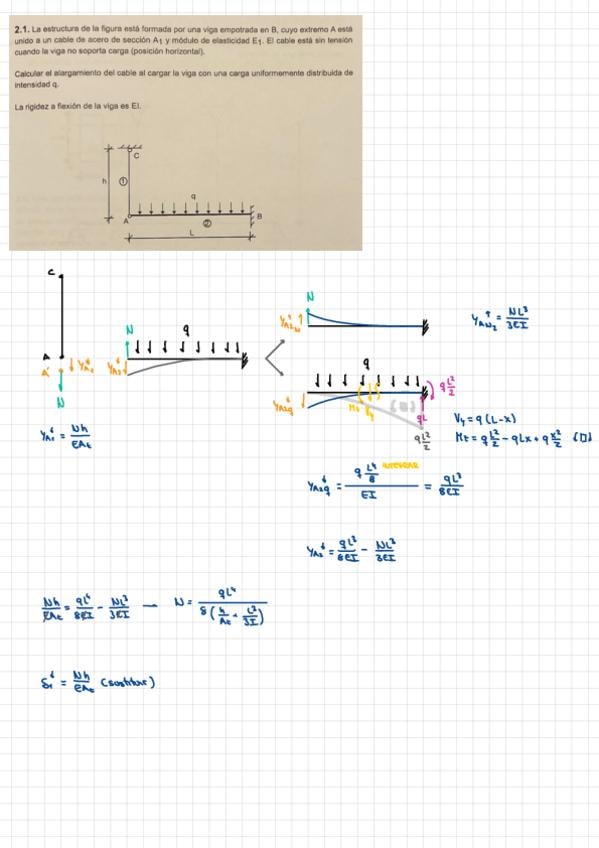 2.1. La estructura de la figura está formada por una viga empotrada en B, cuyo extremo A está
unido a un cable de acero de sección A₁ y módulo de elasticidad E₁. El cable está sin tensión
cuando la viga no soporta carga (posición horizontal).
Calcular el alargamiento del cable al cargar la viga con una carga uniformemente distribuida de
intensidad q.
La rigidez a flexión de la viga es EI.
C
h ①
q
A B
②
L
C
A
A'
N
N
q
N
q
q L²/2
qL
qL²/2
Y_AN₂↑ = NL³/3EI
V_y = q(L-x)
M_z = q L²/2 - qLx + q x²/2
Y_A₁↓ = Nh/EA₁
Y_A₂q↓ = q L⁴/8 / EI = qL³/8EI
Y_A₂↓ = qL³/8EI - NL³/3EI
Nh/EA₁ = qL⁴/8EI - NL³/3EI → N = qL⁴ / 8(h/A₁ + L³/3I)
δ₁↓ = Nh/EA₁ (sustituir)